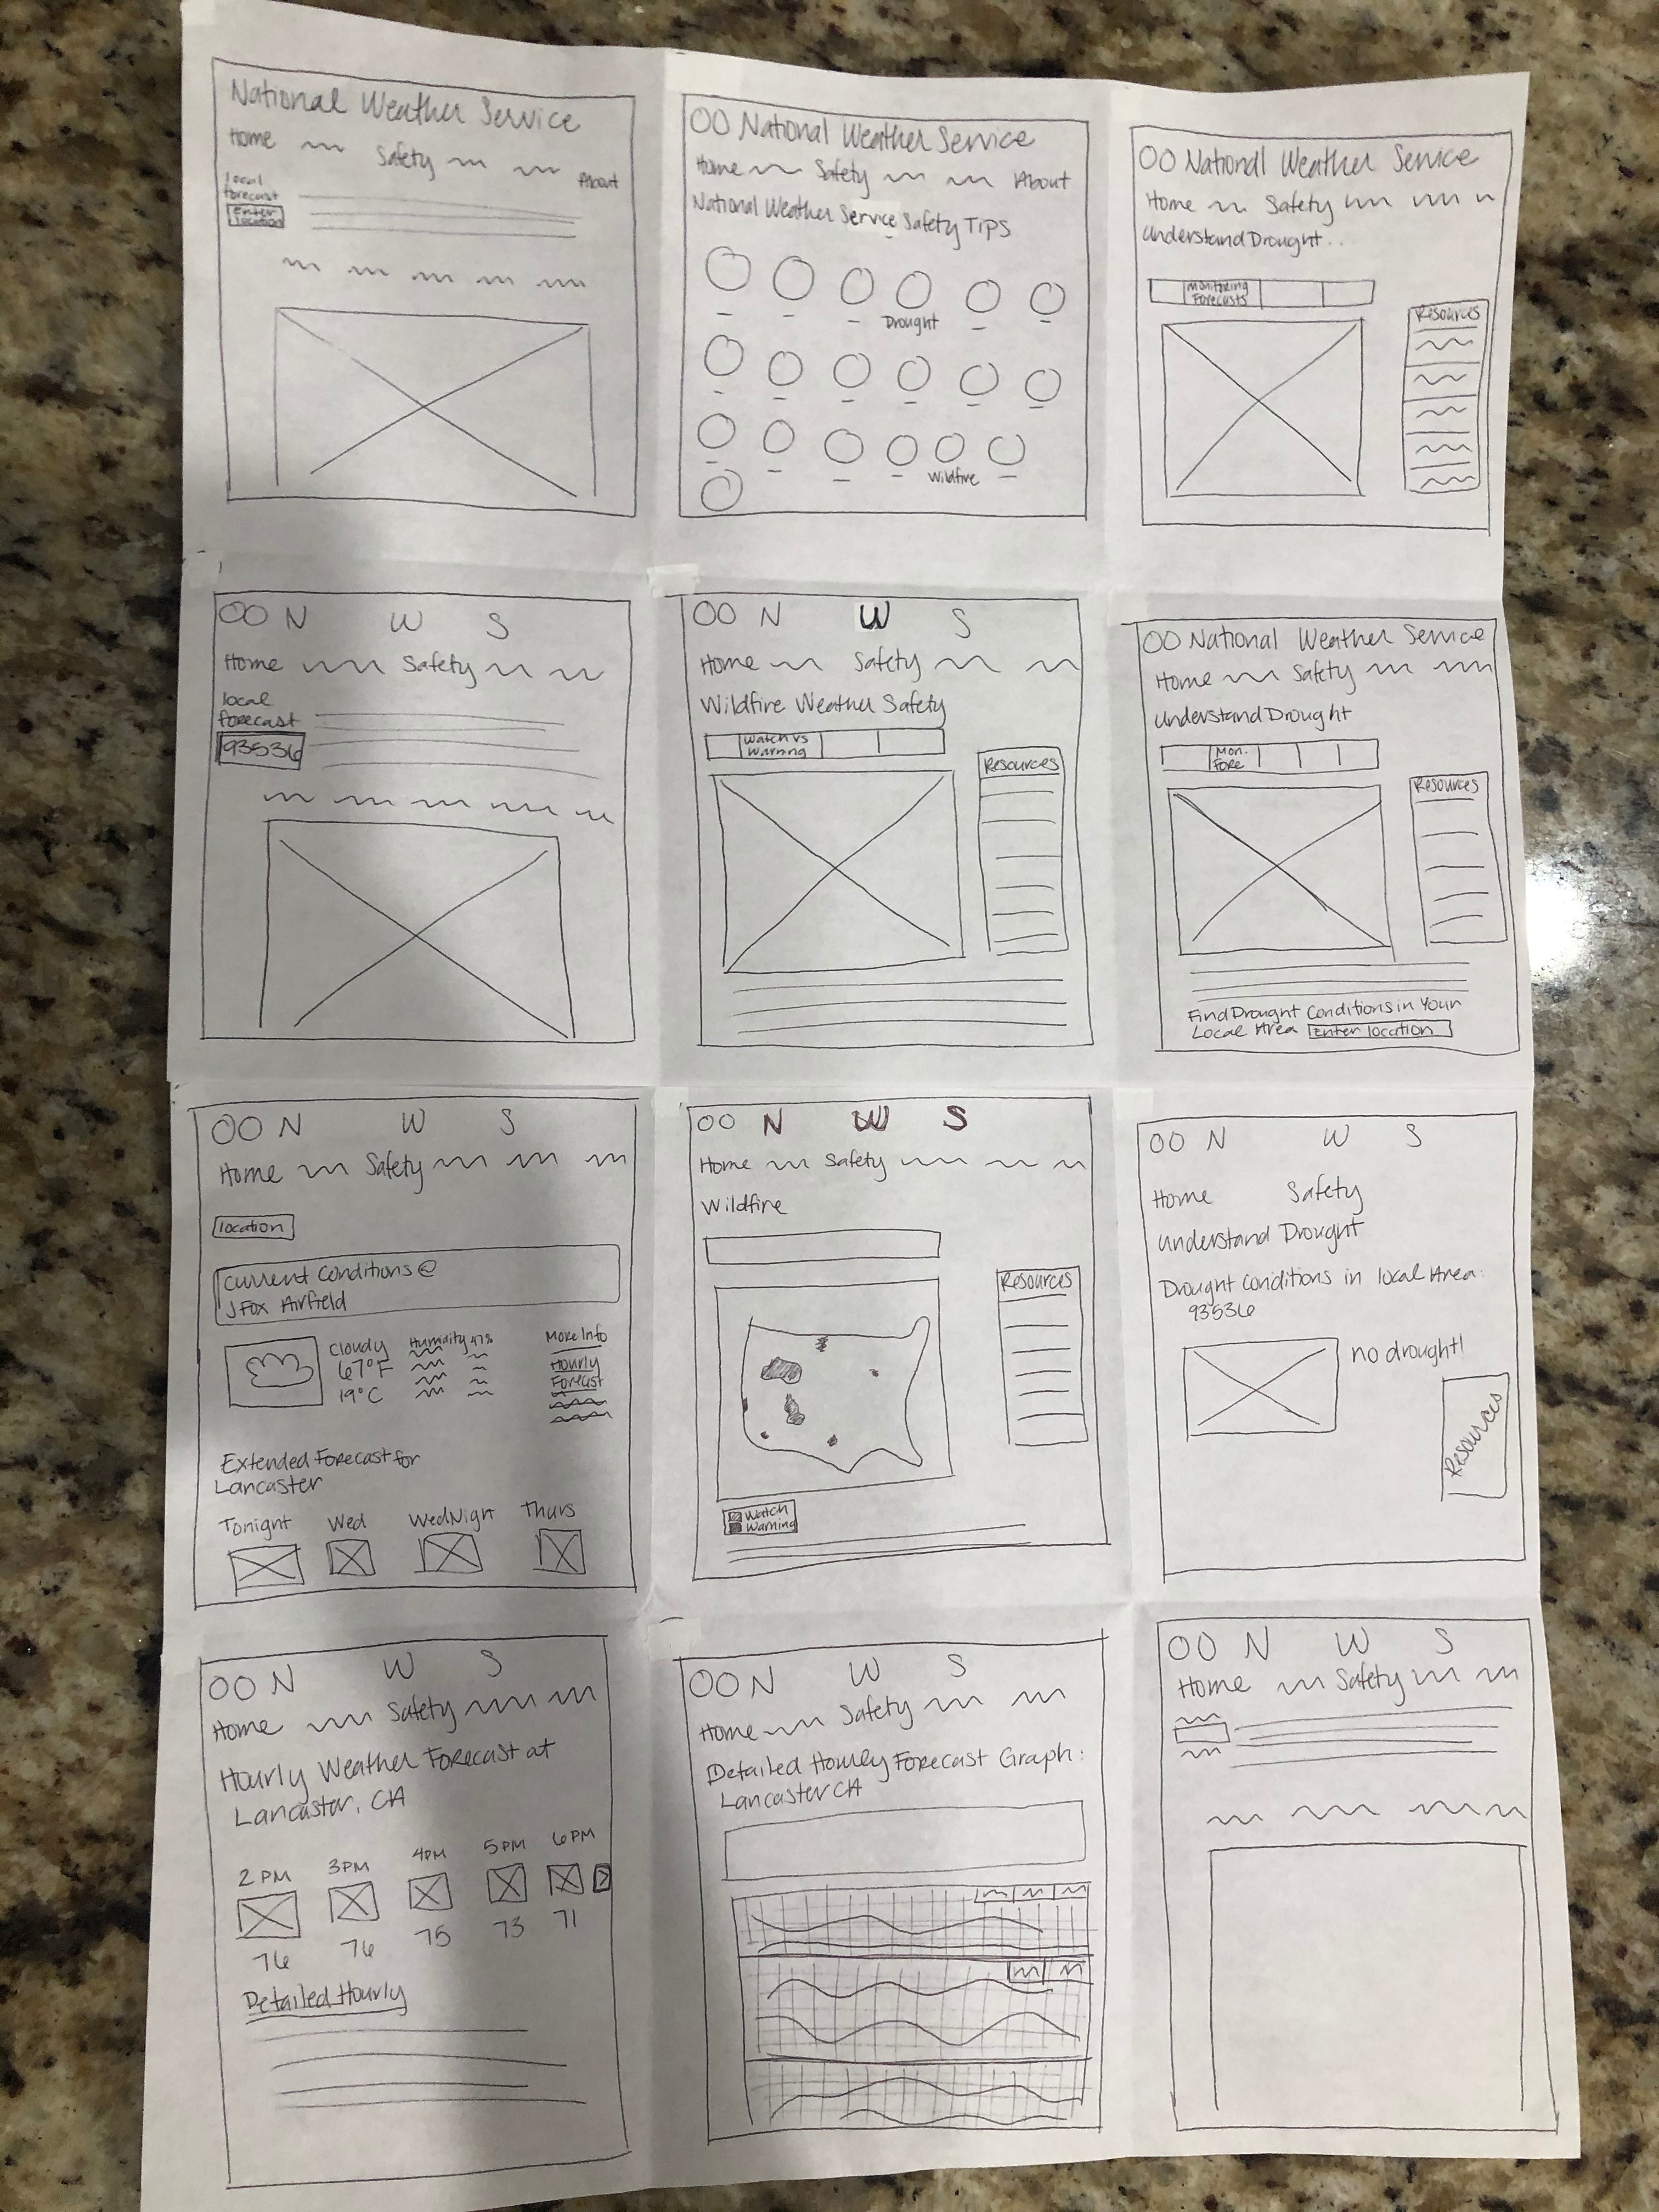 National Weather Service
Home Safety About
Local
forecast
Enter
location
OO National Weather Service
Home Safety About
National Weather Service Safety Tips
Drought
Wildfire
OO National Weather Service
Home Safety
Understand Drought..
Monitoring
Forecasts
Resources
OO N W S
Home Safety
local
forecast
93536
OO N W S
Home Safety
Wildfire Weather Safety
Watch vs
Warning
Resources
OO National Weather Service
Home Safety
Understand Drought
Mon.
Fore
Resources
Find Drought Conditions in Your
Local Area Enter location
OO N W S
Home Safety
location
Current Conditions @
J Fox Airfield
Cloudy
67°F
19°C
Humidity 47%
More Info
Hourly
Forecast
Extended Forecast for
Lancaster
Tonight Wed Wed Night Thurs
OO N W S
Home Safety
Wildfire
Resources
Watch
Warning
OO N W S
Home Safety
Understand Drought
Drought Conditions in local Area:
93536
no drought!
Resources
OO N W S
Home Safety
Hourly Weather Forecast at
Lancaster, CA
2 PM 3PM 4PM 5PM 6PM
>
76 76 75 73 71
Detailed Hourly
OO N W S
Home Safety
Detailed Hourley Forecast Graph:
Lancaster CA
OO N W S
Home Safety